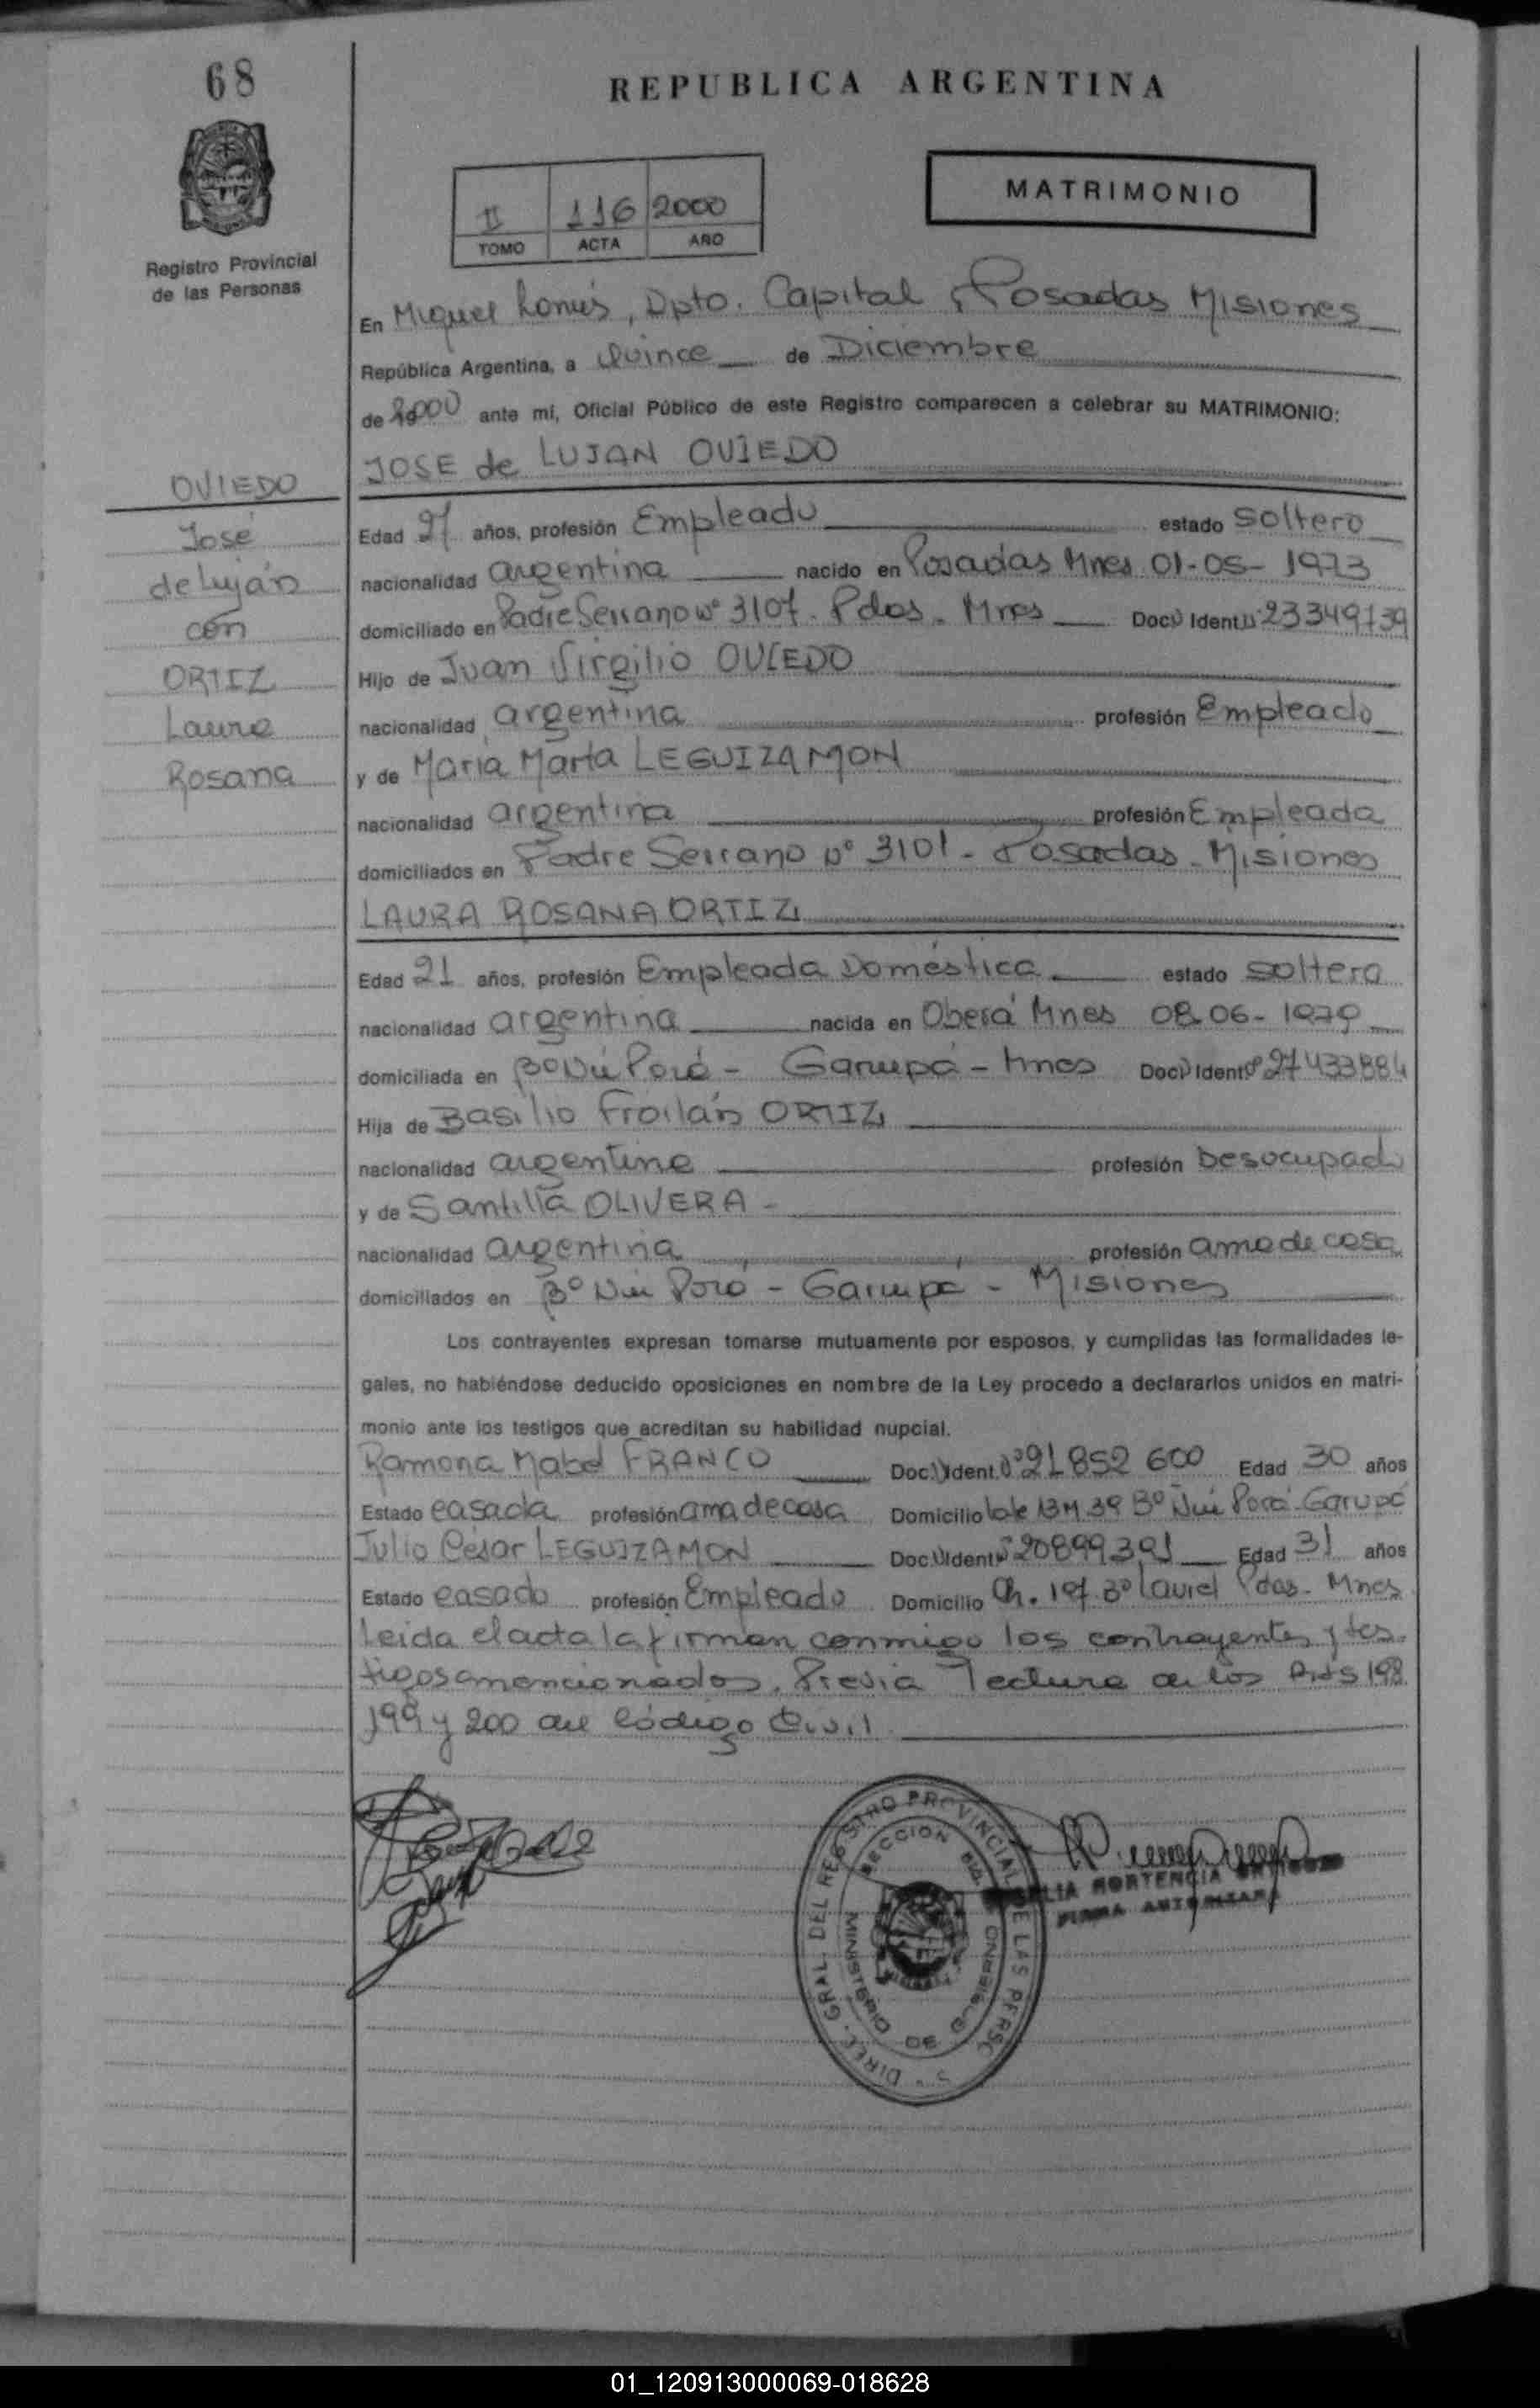 68
REPUBLICA ARGENTINA
II 116 2000
TOMO ACTA AÑO
MATRIMONIO
Registro Provincial
de las Personas
En Miguel Lanús, Dpto. Capital, Posadas Misiones
República Argentina, a Quince de Diciembre
de 2000 ante mí, Oficial Público de este Registro comparecen a celebrar su MATRIMONIO:
JOSE de LUJAN OVIEDO
OVIEDO
José
de Luján
con
ORTIZ
Laura
Rosana
Edad 27 años, profesión Empleado estado Soltero
nacionalidad argentina nacido en Posadas Mnes 01-05-1973
domiciliado en Padre Serrano Nº 3107. Pdas. Mnes Doc. Ident. 23349739
Hijo de Juan Virgilio OVIEDO
nacionalidad argentina profesión Empleado
y de María Marta LEGUIZAMON
nacionalidad argentina profesión Empleada
domiciliados en Padre Serrano Nº 3101 - Posadas - Misiones
LAURA ROSANA ORTIZ
Edad 21 años, profesión Empleada Doméstica estado soltera
nacionalidad argentina nacida en Oberá Mnes 08-06-1979
domiciliada en Bº Ñú Porá - Garupá - Mnes Doc. Ident. 27433884
Hija de Basilio Froilán ORTIZ
nacionalidad argentina profesión Desocupado
y de Santilla OLIVERA -
nacionalidad argentina profesión ama de casa
domiciliados en Bº Ñú Porá - Garupá - Misiones
Los contrayentes expresan tomarse mutuamente por esposos, y cumplidas las formalidades le-
gales, no habiéndose deducido oposiciones en nombre de la Ley procedo a declararlos unidos en matri-
monio ante los testigos que acreditan su habilidad nupcial.
Ramona Mabel FRANCO Doc. Ident. Nº 21852600 Edad 30 años
Estado casada profesión ama de casa Domicilio lote 13 M 39 Bº Ñú Porá - Garupá
Julio César LEGUIZAMON Doc. Ident. 20899391 Edad 31 años
Estado casado profesión Empleado Domicilio Ch. 197 Bº Laurel Pdas. Mnes
Leida el acta la firman conmigo los contrayentes y tes-
tigos mencionados. Previa lectura de los Arts 198
199 y 200 del Código Civil
DIREC. GRAL. DEL REGISTRO PROVINCIAL DE LAS PERSC S
MINISTERIO DE GOBIERNO
HORTENCIA
FIRMA AUTORIZADA
01_120913000069-018628